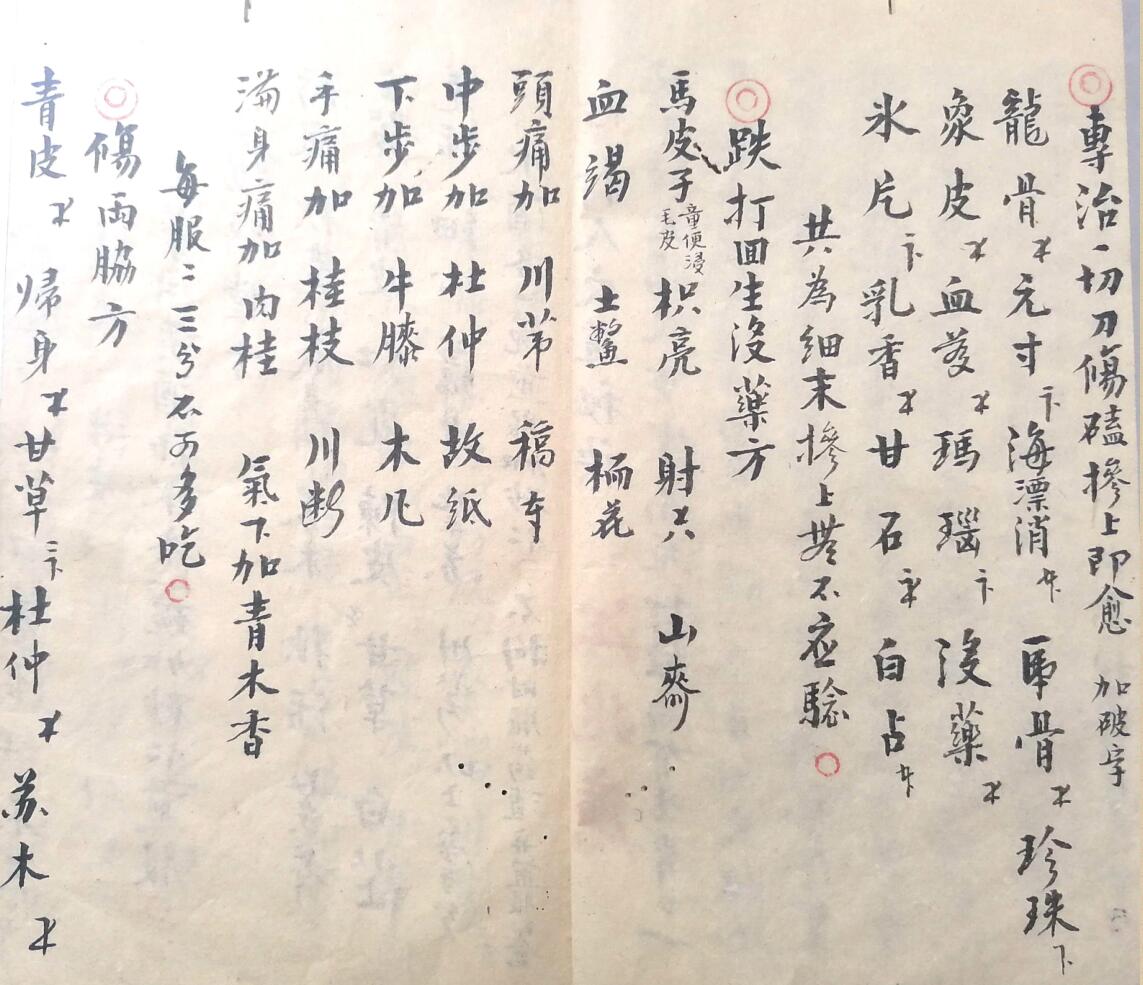 專治一切刀傷磕摻上即愈 加破字
龍骨 元寸 海漂消 乕骨 珍珠
象皮 血苓 瑪瑙 沒藥
氷片 乳香 甘石 白占
共為細末摻上無不应驗
跌打回生沒藥方
馬皮子 童便浸毛皮 枳亮 射 山
血竭 土鱉 柄花
頭痛加 川芎 稿本
中步加 杜仲 故紙
下步加 牛膝 木凡
手痛加 桂枝 川断
滿身痛加 肉桂 氣下加青木香
每服二三分不可多吃
傷両脇方
青皮 帰身 甘草 杜仲 苏木